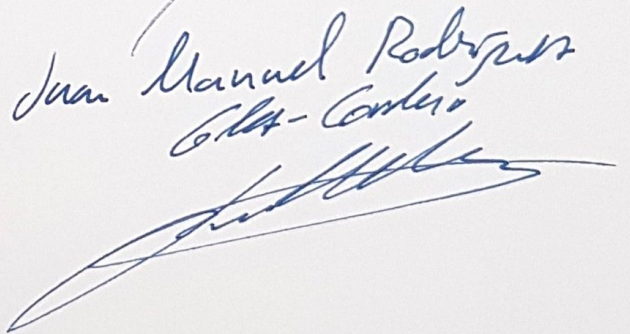 Juan Manuel Rodríguez
Glez-Cordero